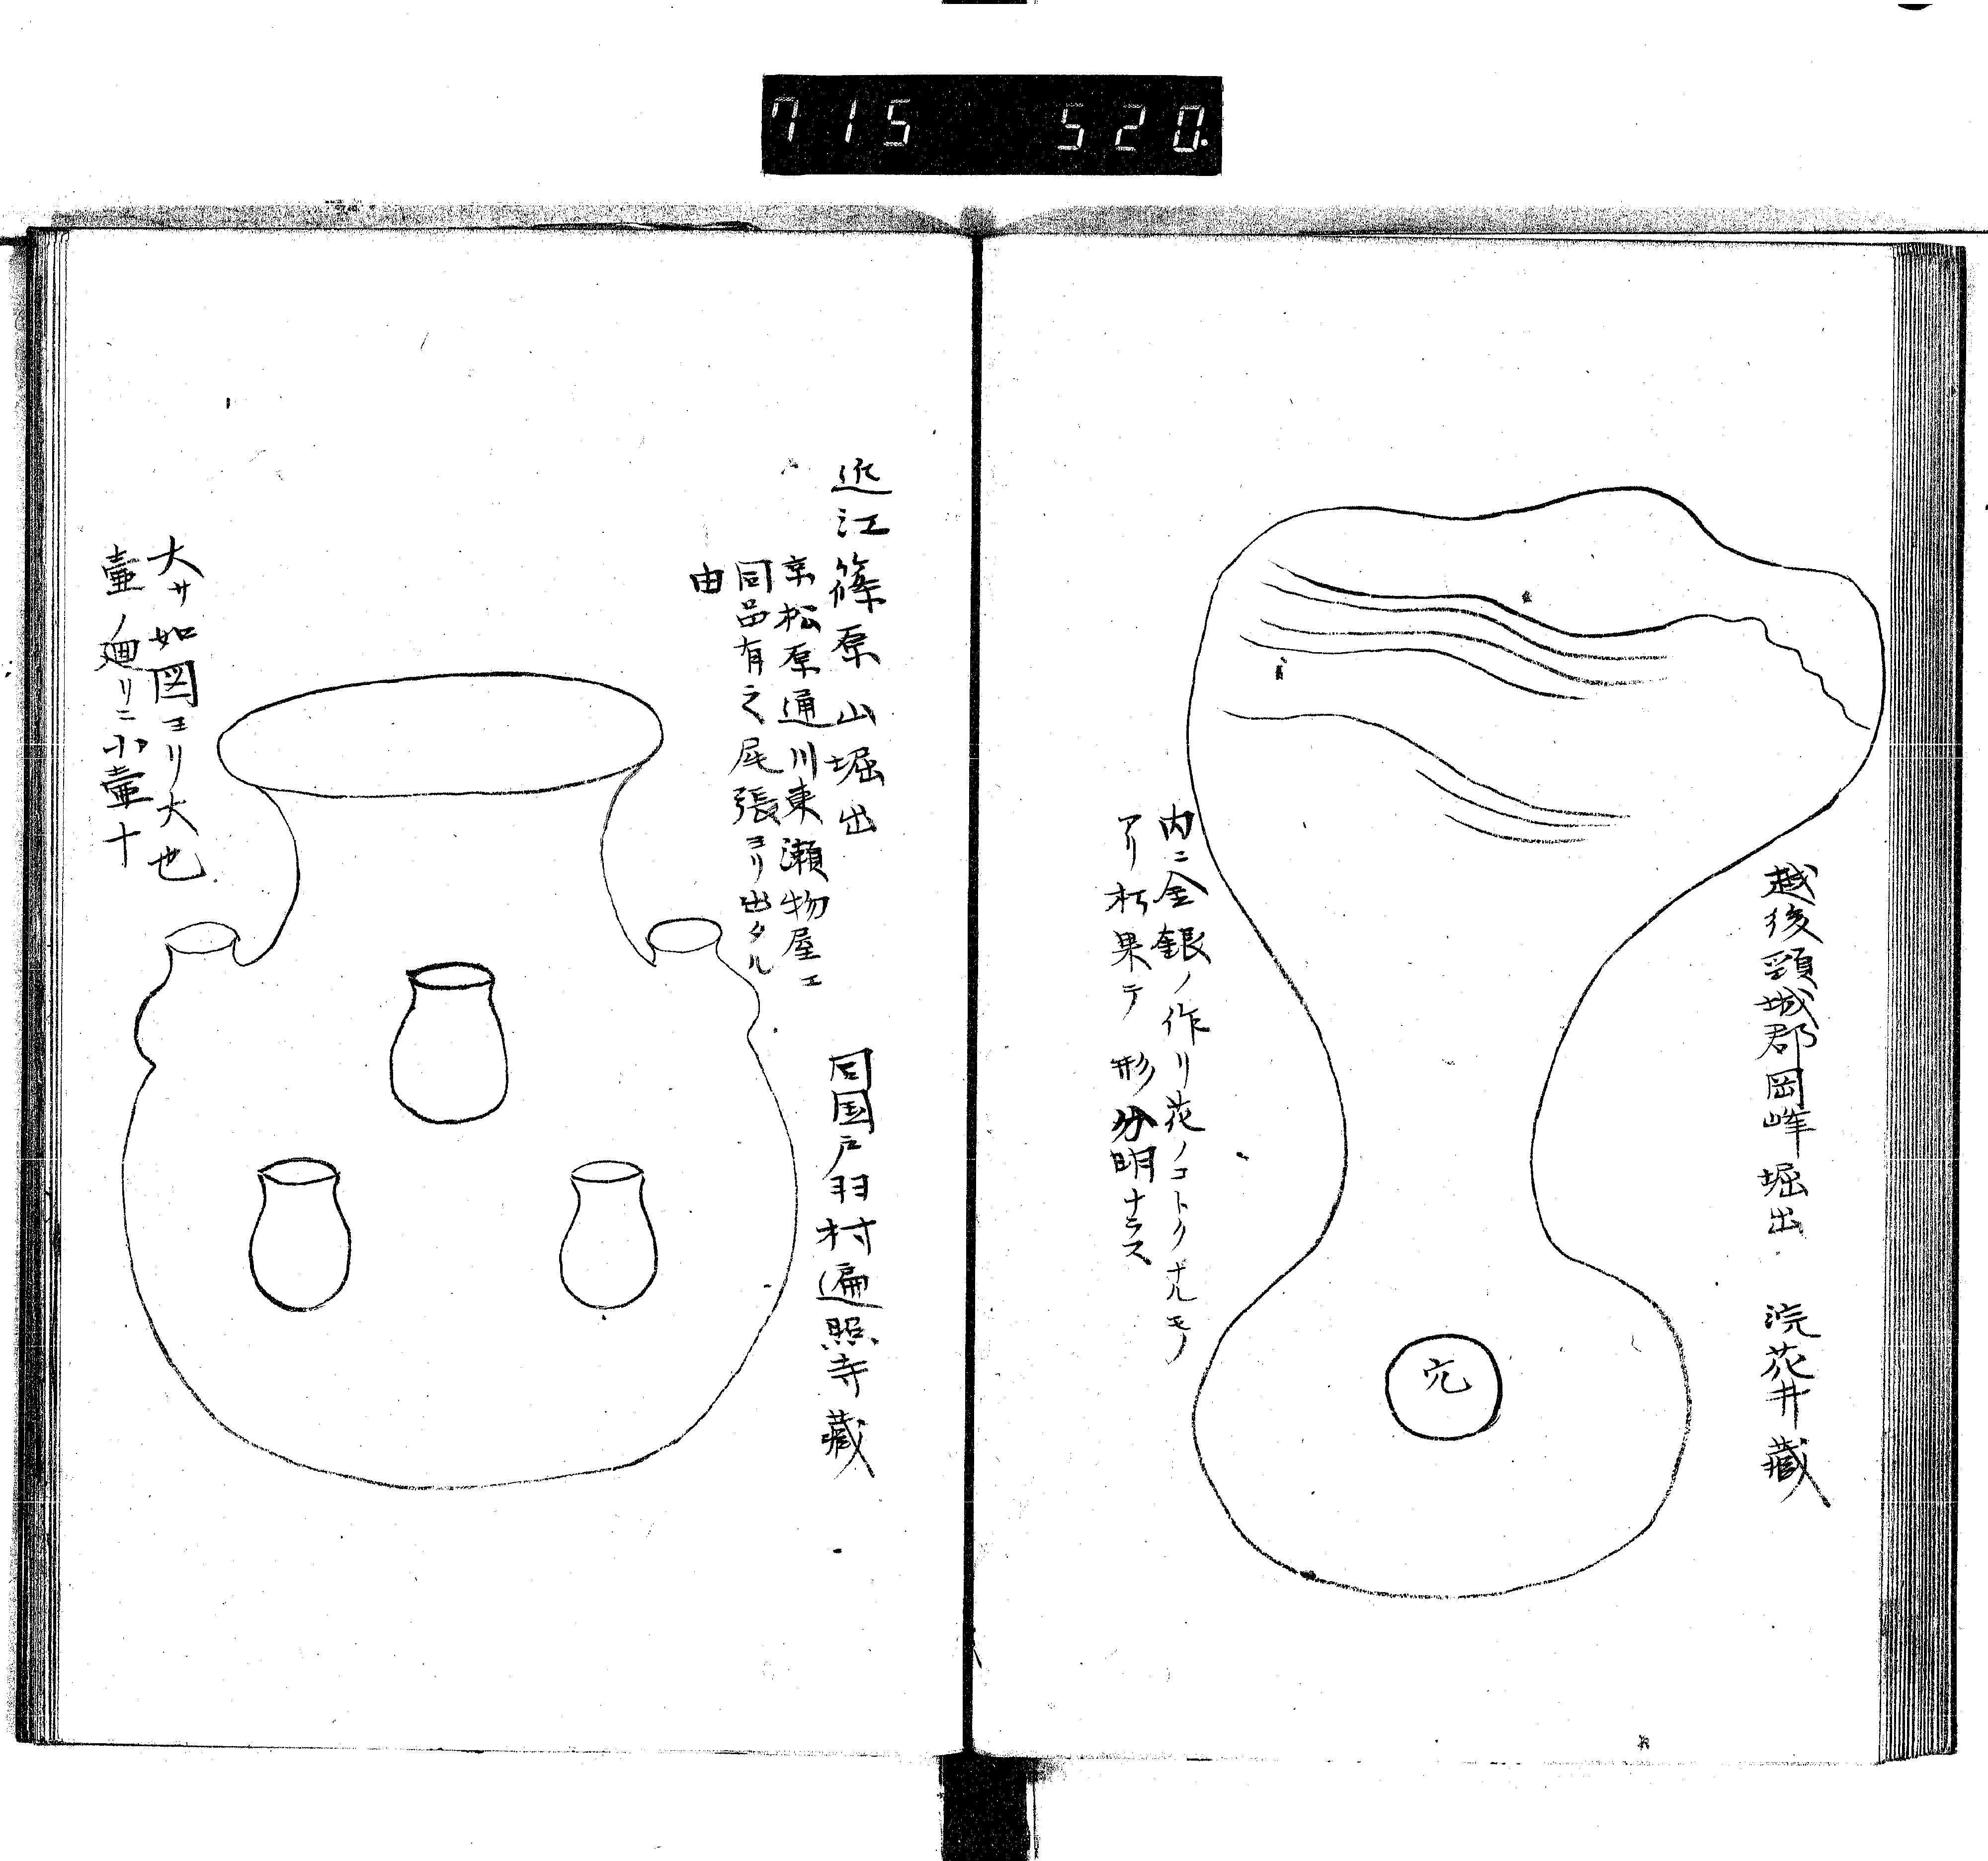 715 520.
越後頸城郡岡峰堀出 浣花井藏
内ニ金銀ノ作リ花ノコトクナルモノ
アリ朽果テ 形分明ナラス
穴
近江篠原山堀出 同国戸羽村遍照寺藏
京松原通川東瀬物屋エ
同品有之尾張ヨリ出タル
由
大サ如図ヨリ大也
壷ノ廻リニ小壷十